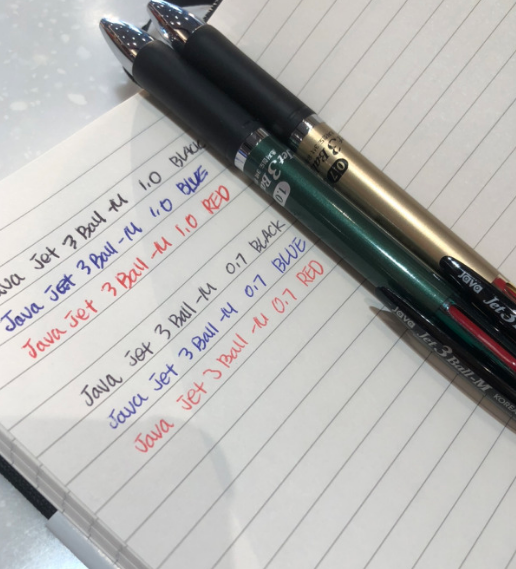 Java Jet 3 Ball-M 1.0 BLACK
Java Jet 3 Ball-M 1.0 BLUE
Java Jet 3 Ball-M 1.0 RED
Java Jet 3 Ball-M 0.7 BLACK
Java Jet 3 Ball-M 0.7 BLUE
Java Jet 3 Ball-M 0.7 RED
Jet 3 Ball
1.0
3 Ball
0.7
Java Jet 3
Java Jet 3 Ball-M KOREA